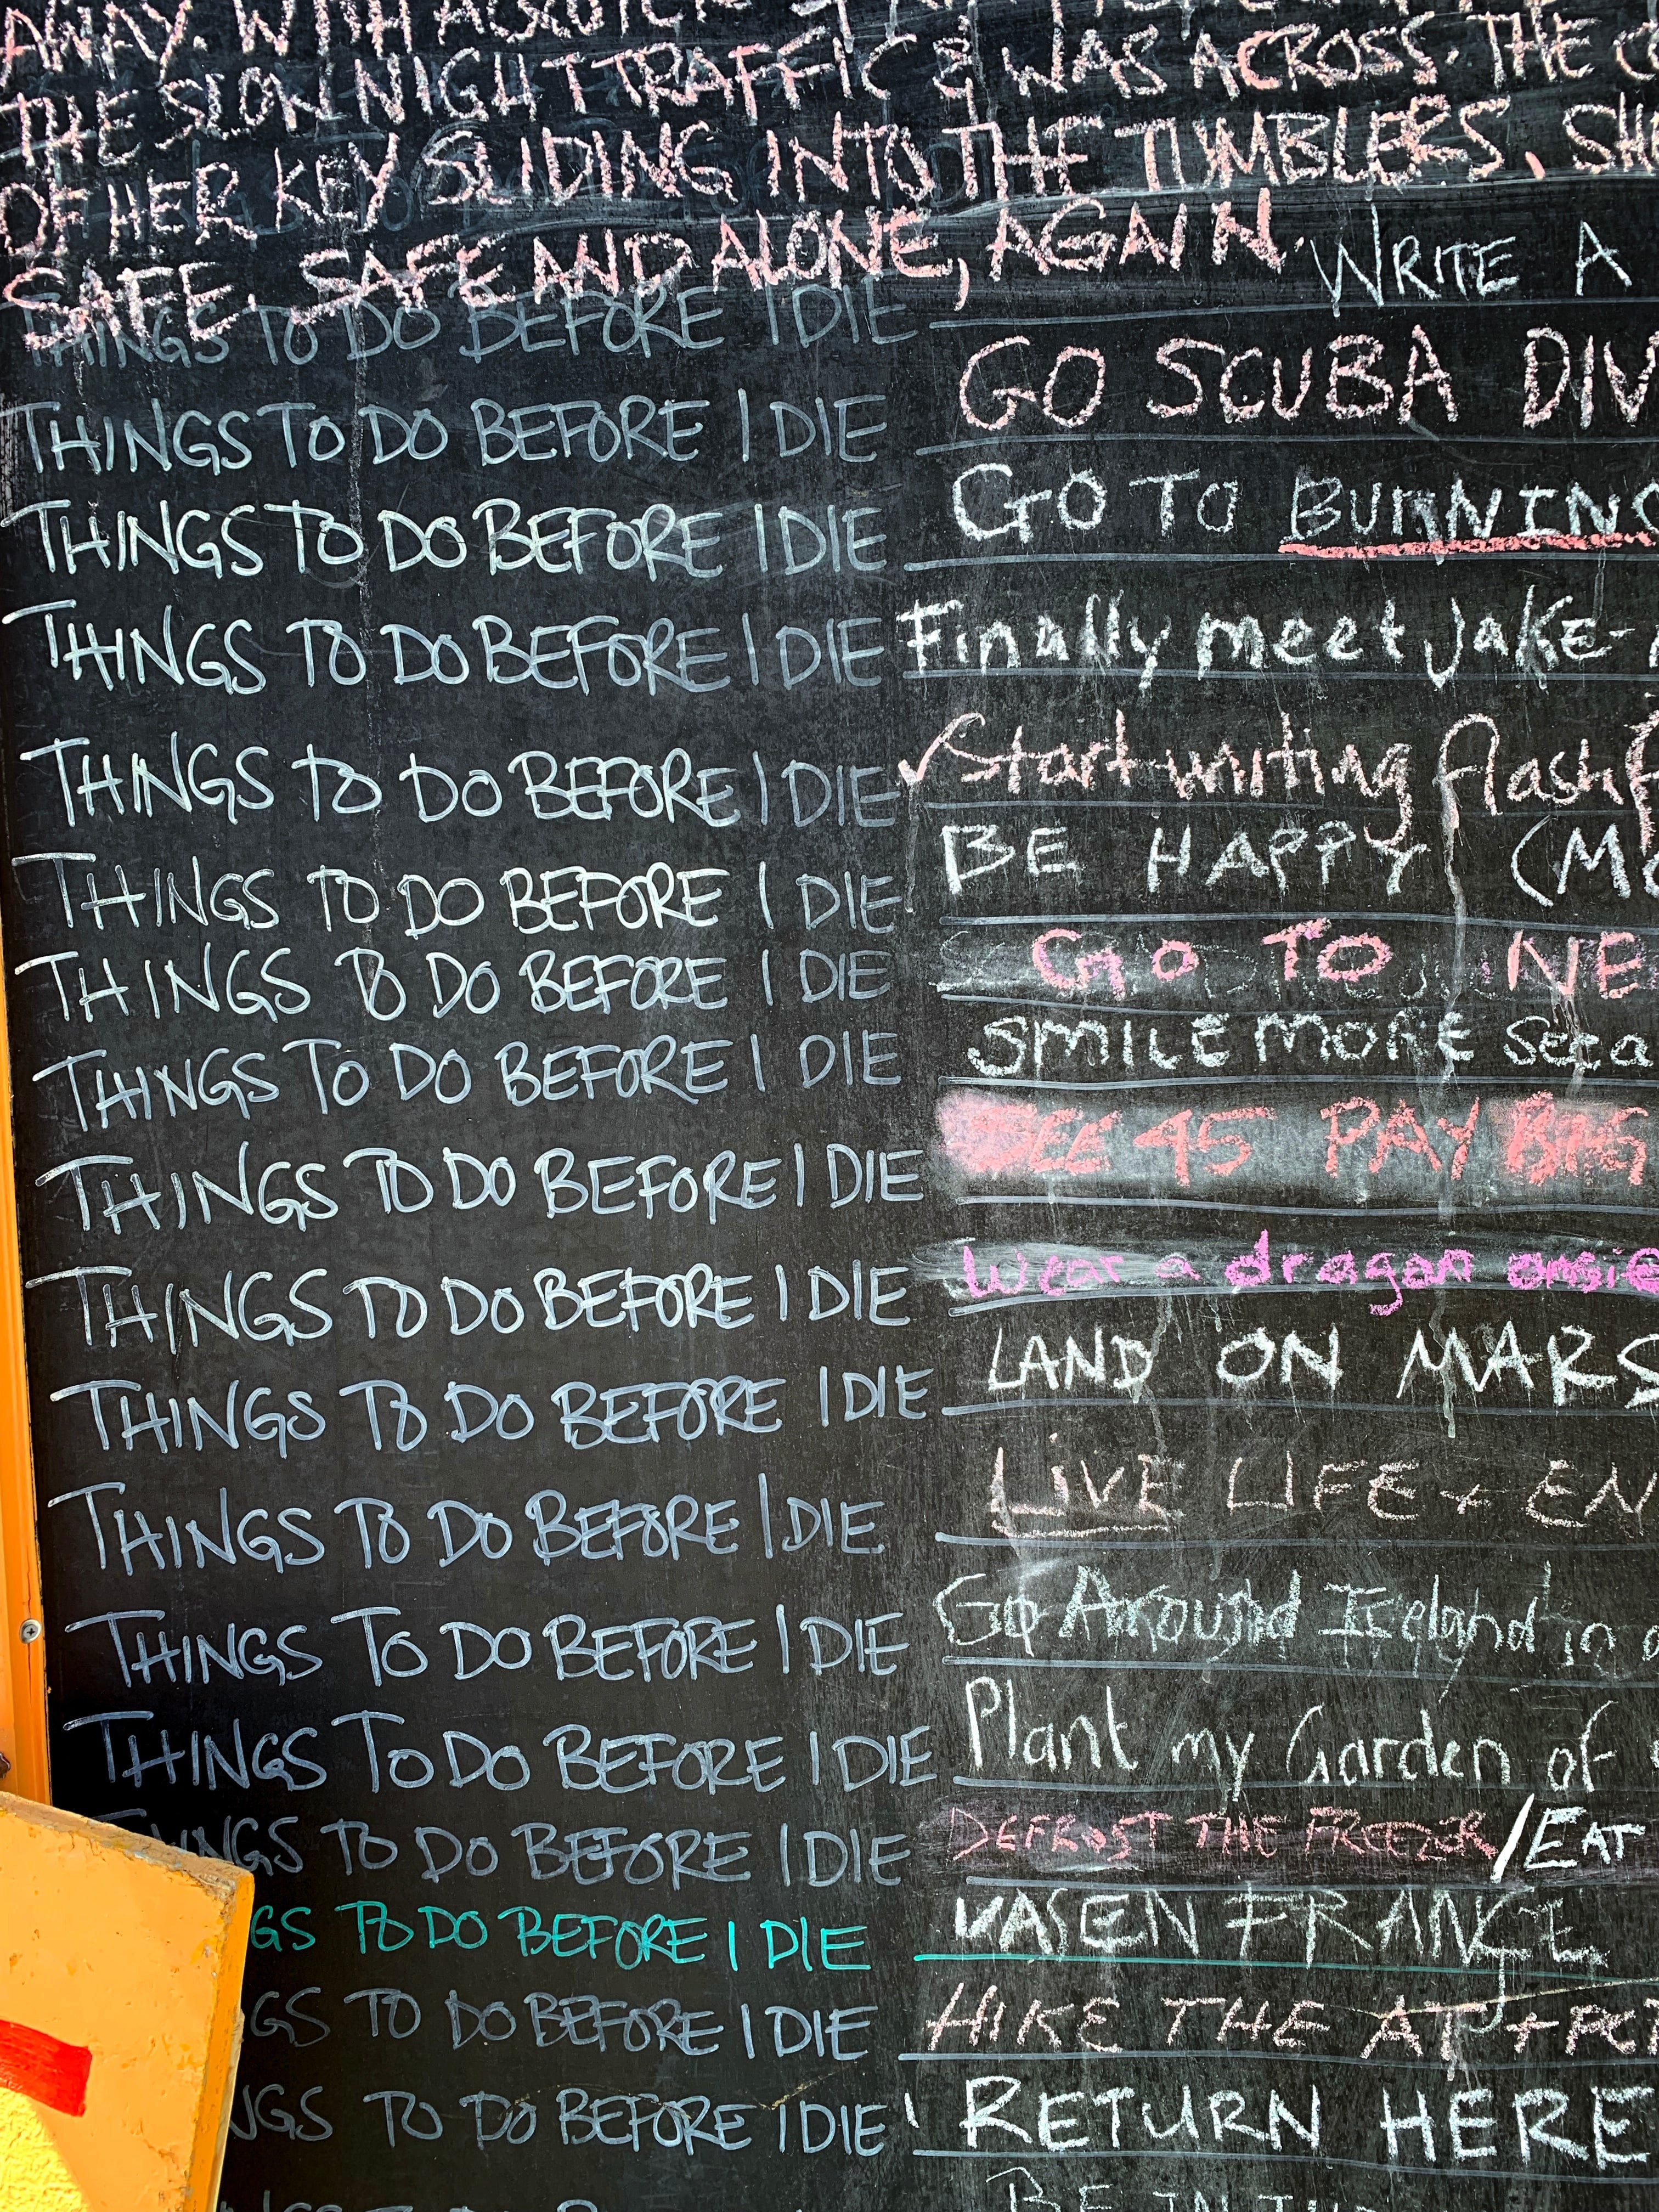 AWAY. WITH A QUICK
THE SLOW NIGHT TRAFFIC & WAS ACROSS. THE
OF HER KEY SLIDING INTO THE TUMBLERS. SH
SAFE. SAFE AND ALONE, AGAIN.
THINGS TO DO BEFORE I DIE WRITE A
THINGS TO DO BEFORE I DIE GO SCUBA DIV
THINGS TO DO BEFORE I DIE GO TO BURNING
THINGS TO DO BEFORE I DIE Finally meet Jake-
THINGS TO DO BEFORE I DIE ✓ Start writing flash f
THINGS TO DO BEFORE I DIE BE HAPPY (MO
THINGS TO DO BEFORE I DIE GO TO NE
THINGS TO DO BEFORE I DIE SMILE MORE
THINGS TO DO BEFORE I DIE SEE 45 PAY BIG
THINGS TO DO BEFORE I DIE Wear a dragon onsie
THINGS TO DO BEFORE I DIE LAND ON MARS
THINGS TO DO BEFORE I DIE LIVE LIFE + EN
THINGS TO DO BEFORE I DIE Go Around Iceland in
THINGS TO DO BEFORE I DIE Plant my Garden of
THINGS TO DO BEFORE I DIE DEFROST THE FREEZER /EAT
GS TO DO BEFORE I DIE FRANCE
GS TO DO BEFORE I DIE HIKE THE AT + PCT
NGS TO DO BEFORE I DIE RETURN HERE
BE IN